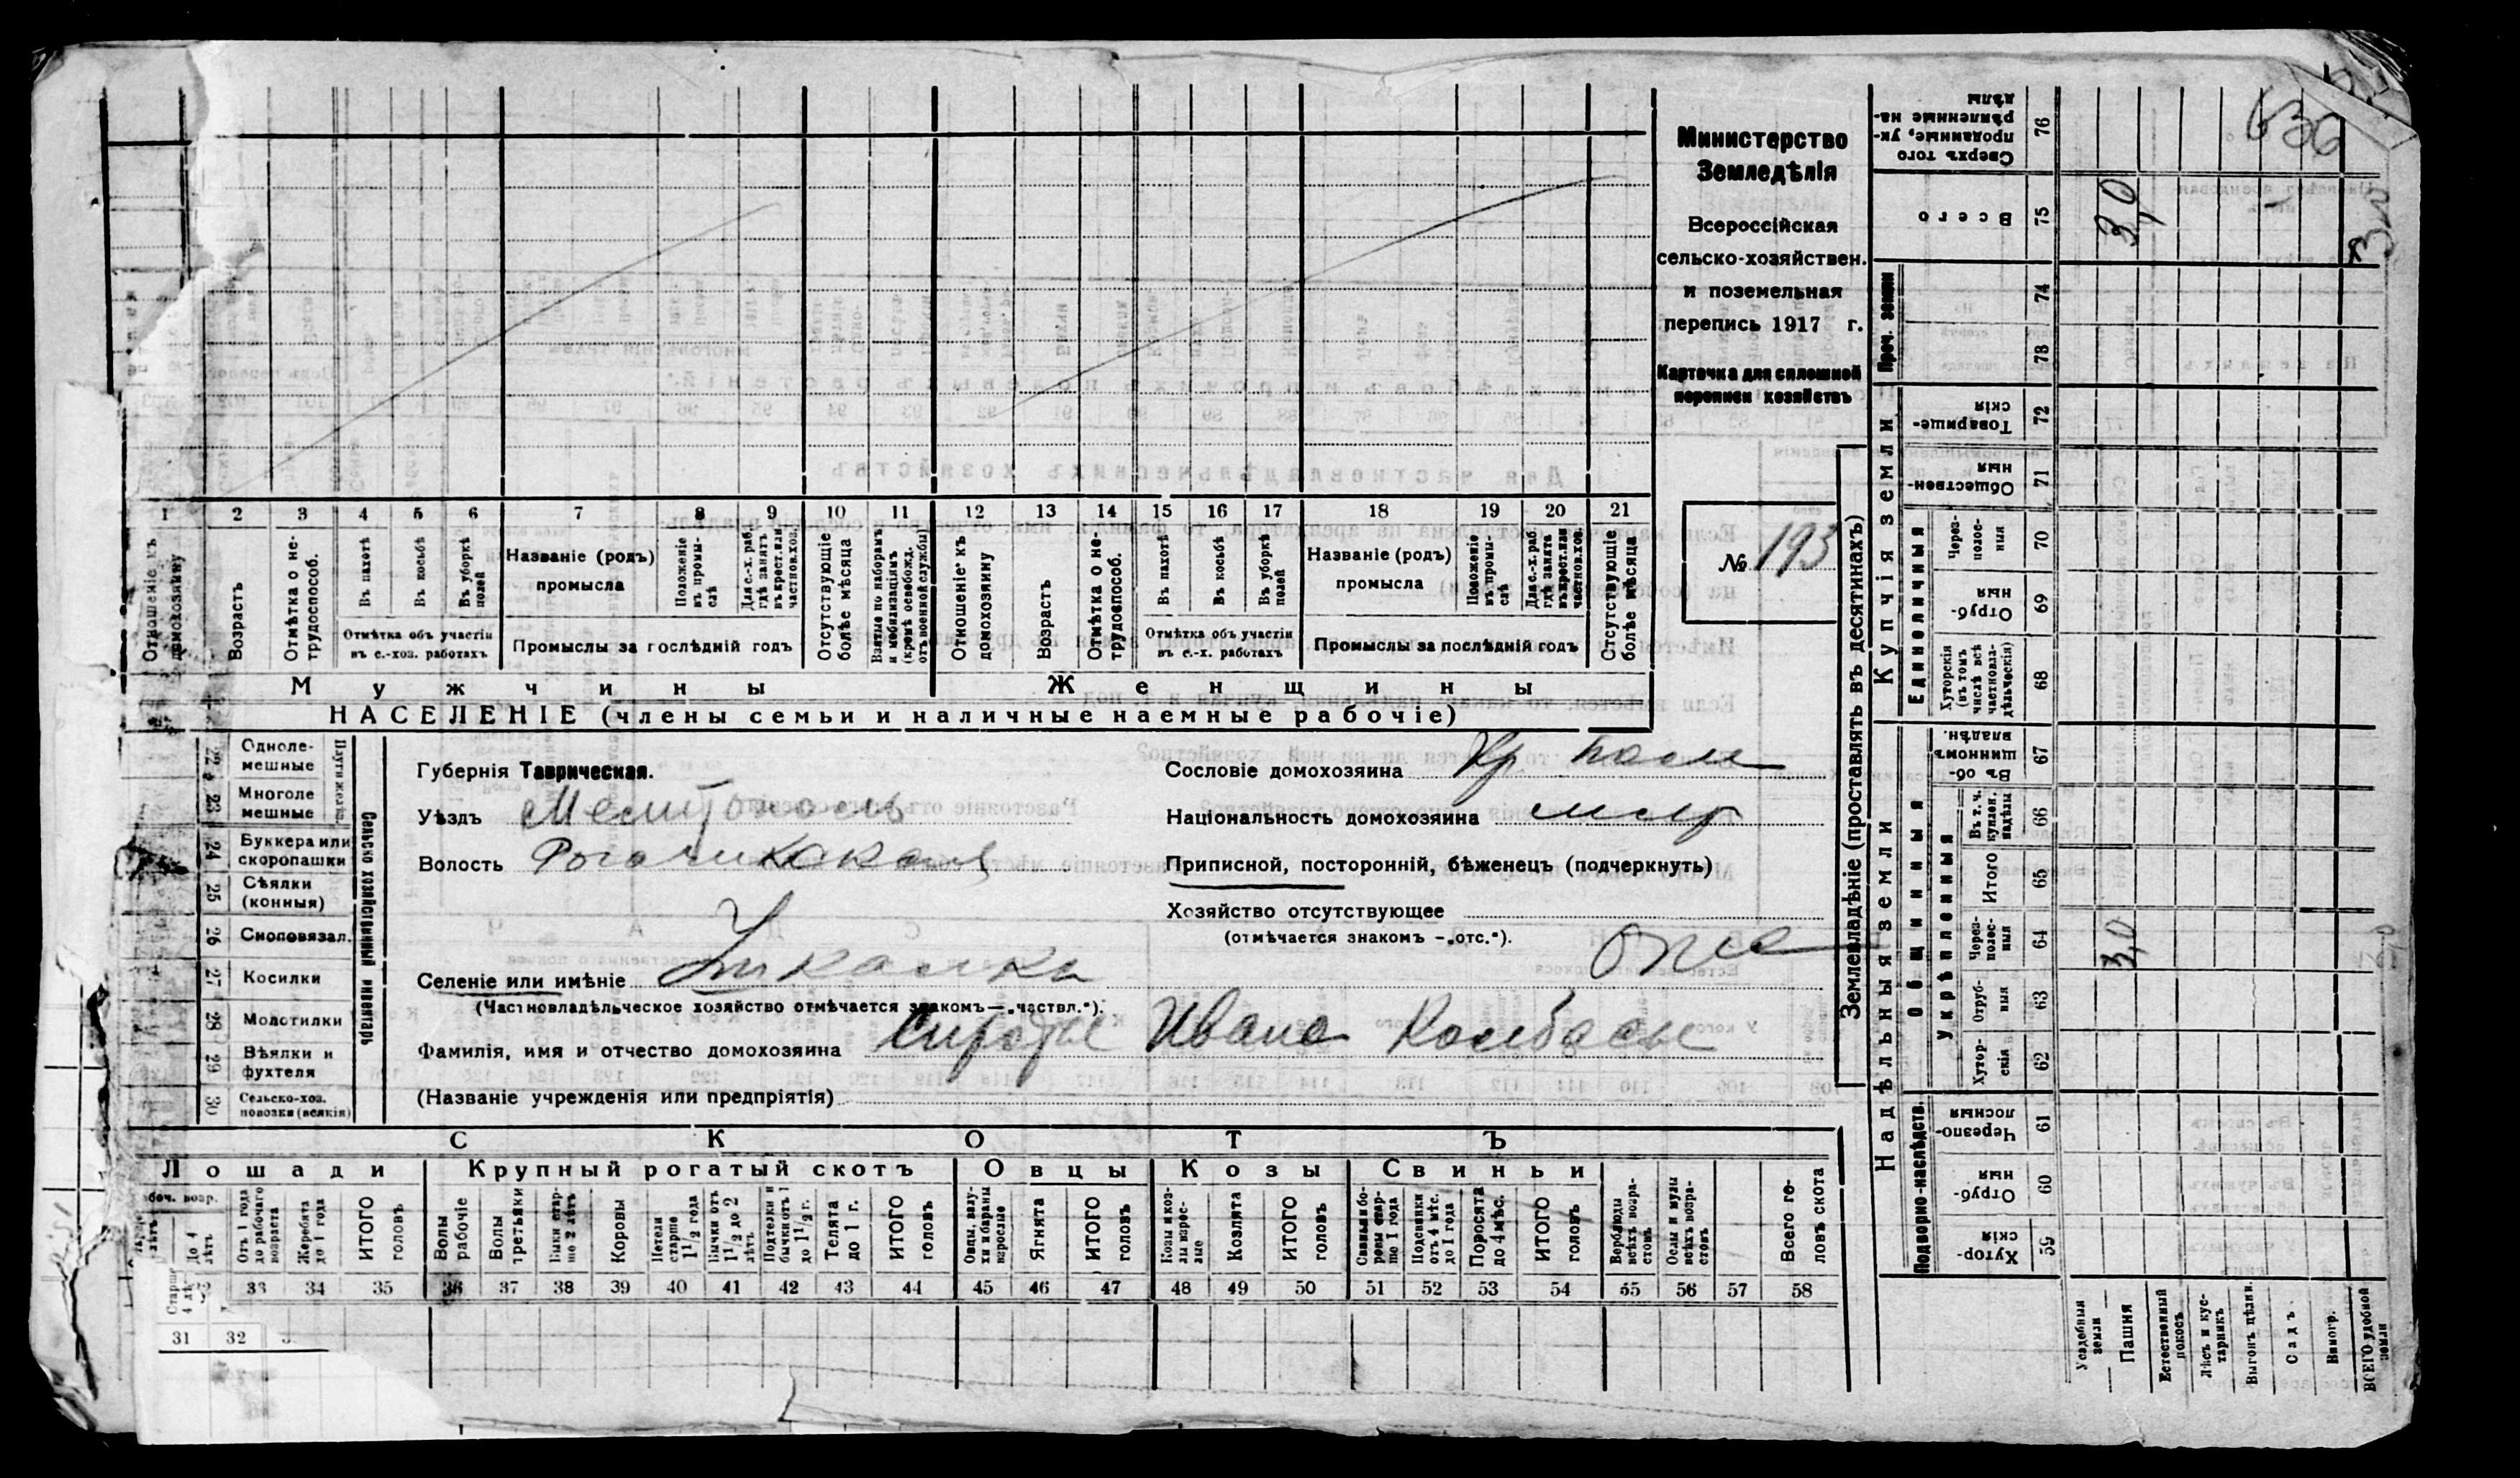 Министерство
Земледѣлія
Всероссійская
сельско-хозяйствен.
и поземельная
перепись 1917 г.
Карточка для сплошной
переписи хозяйствъ
№ 193
636
1 2 3 4 5 6 7 8 9 10 11 12 13 14 15 16 17 18 19 20 21
Отношеніе къ домохозяину
Возрастъ
Отмѣтка о не-трудоспособ.
Въ пахотѣ
Въ косьбѣ
Въ уборкѣ полей
Отмѣтка объ участіи въ с.-хоз. работахъ
Названіе (родъ) промысла
Положеніе въ промы-слѣ
Для с.-х. раб. гдѣ занятъ въ крест. или частнов. хоз.
Промыслы за послѣдній годъ
Отсутствующіе болѣе мѣсяца
Взятые по наборамъ и мобилизаціямъ (кромѣ освобожд. отъ военной службы)
Отношеніе къ домохозяину
Возрастъ
Отмѣтка о не-трудоспособ.
Въ пахотѣ
Въ косьбѣ
Въ уборкѣ полей
Отмѣтка объ участіи въ с.-х. работахъ
Названіе (родъ) промысла
Положеніе въ промы-слѣ
Для с.-х. раб. гдѣ занята въ крест. или частнов. хоз.
Промыслы за послѣдній годъ
Отсутствующіе болѣе мѣсяца
Мужчины
Женщины
НАСЕЛЕНІЕ (члены семьи и наличные наемные рабочіе)
Сельско хозяйственный инвентарь
Плуги желѣз.
22 Одноле-мешные
23 Многоле мешные
24 Буккера или скоропашки
25 Сѣялки (конныя)
26 Сноповязал.
27 Косилки
28 Молотилки
29 Вѣялки и фухтеля
30 Сельско-хоз. повозки (всякія)
Губернія Таврическая.
Уѣздъ Мелитополь
Волость Рогачикская
Селеніе или имѣніе
(Частновладѣльческое хозяйство отмѣчается знакомъ — „частвл.").
Фамилія, имя и отчество домохозяина Сироты Ивана Колбасы
(Названіе учрежденія или предпріятія)
Сословіе домохозяина Кр
Національность домохозяина млр
Приписной, посторонній, бѣженецъ (подчеркнуть)
Хозяйство отсутствующее
(отмѣчается знакомъ — „отс.").
СКОТЪ
Лошади
Крупный рогатый скотъ
Овцы
Козы
Свиньи
До 4 лѣтъ
Отъ 1 года до рабочаго возраста
Жеребята до 1 года
ИТОГО головъ
Волы рабочіе
Волы третьяки
Быки стар-ше 2 лѣтъ
Коровы
Нетели старше 1½ года
Бычки отъ 1½ до 2 лѣтъ
Подтелки и бычки отъ 1 до 1½ г.
Телята до 1 г.
ИТОГО головъ
Овцы, валу-хи и бараны взрослые
Ягнята
ИТОГО головъ
Козы и коз-лы взрос-лые
Козлята
ИТОГО головъ
Свиньи и бо-ровы стар-ше 1 года
Подсвинки отъ 4 мѣс. до 1 года
Поросята до 4 мѣс.
ИТОГО головъ
Верблюды всѣхъ возра-стовъ
Ослы и мулы всѣхъ возра-стовъ
Всего го-ловъ скота
33 34 35 36 37 38 39 40 41 42 43 44 45 46 47 48 49 50 51 52 53 54 55 56 57 58
31 32
Землевладѣніе (проставлять въ десятинахъ)
Надѣльныя земли
Купчія земли
Проч. земли
Подворно-наслѣдств.
Общинныя
Укрѣпленныя
Единоличныя
59 Хутор-скія
60 Отруб-ныя
61 Черезпо-лосныя
62 Хутор-скія
63 Отруб-ныя
64 Через-полос-ныя 3,0
65 Итого
66 Въ т. ч. куплен. надѣлы
67 Въ об-щинномъ владѣн.
68 Хуторскія (въ томъ числѣ всѣ частновла-дѣльческія)
69 Отруб-ныя
70 Через-полос-ныя
71 Обществен-ныя
72 Товарище-скія
73
74
75 Всего 3,0
76 Сверхъ того проданные, ук-рѣпленные на-дѣлы
Усадебныя земли
Пашня
Естественный покосъ
Лѣсъ и кус-тарникъ
Выгонъ цѣлин.
Садъ
Виногр.
ВСЕГО удобной земли